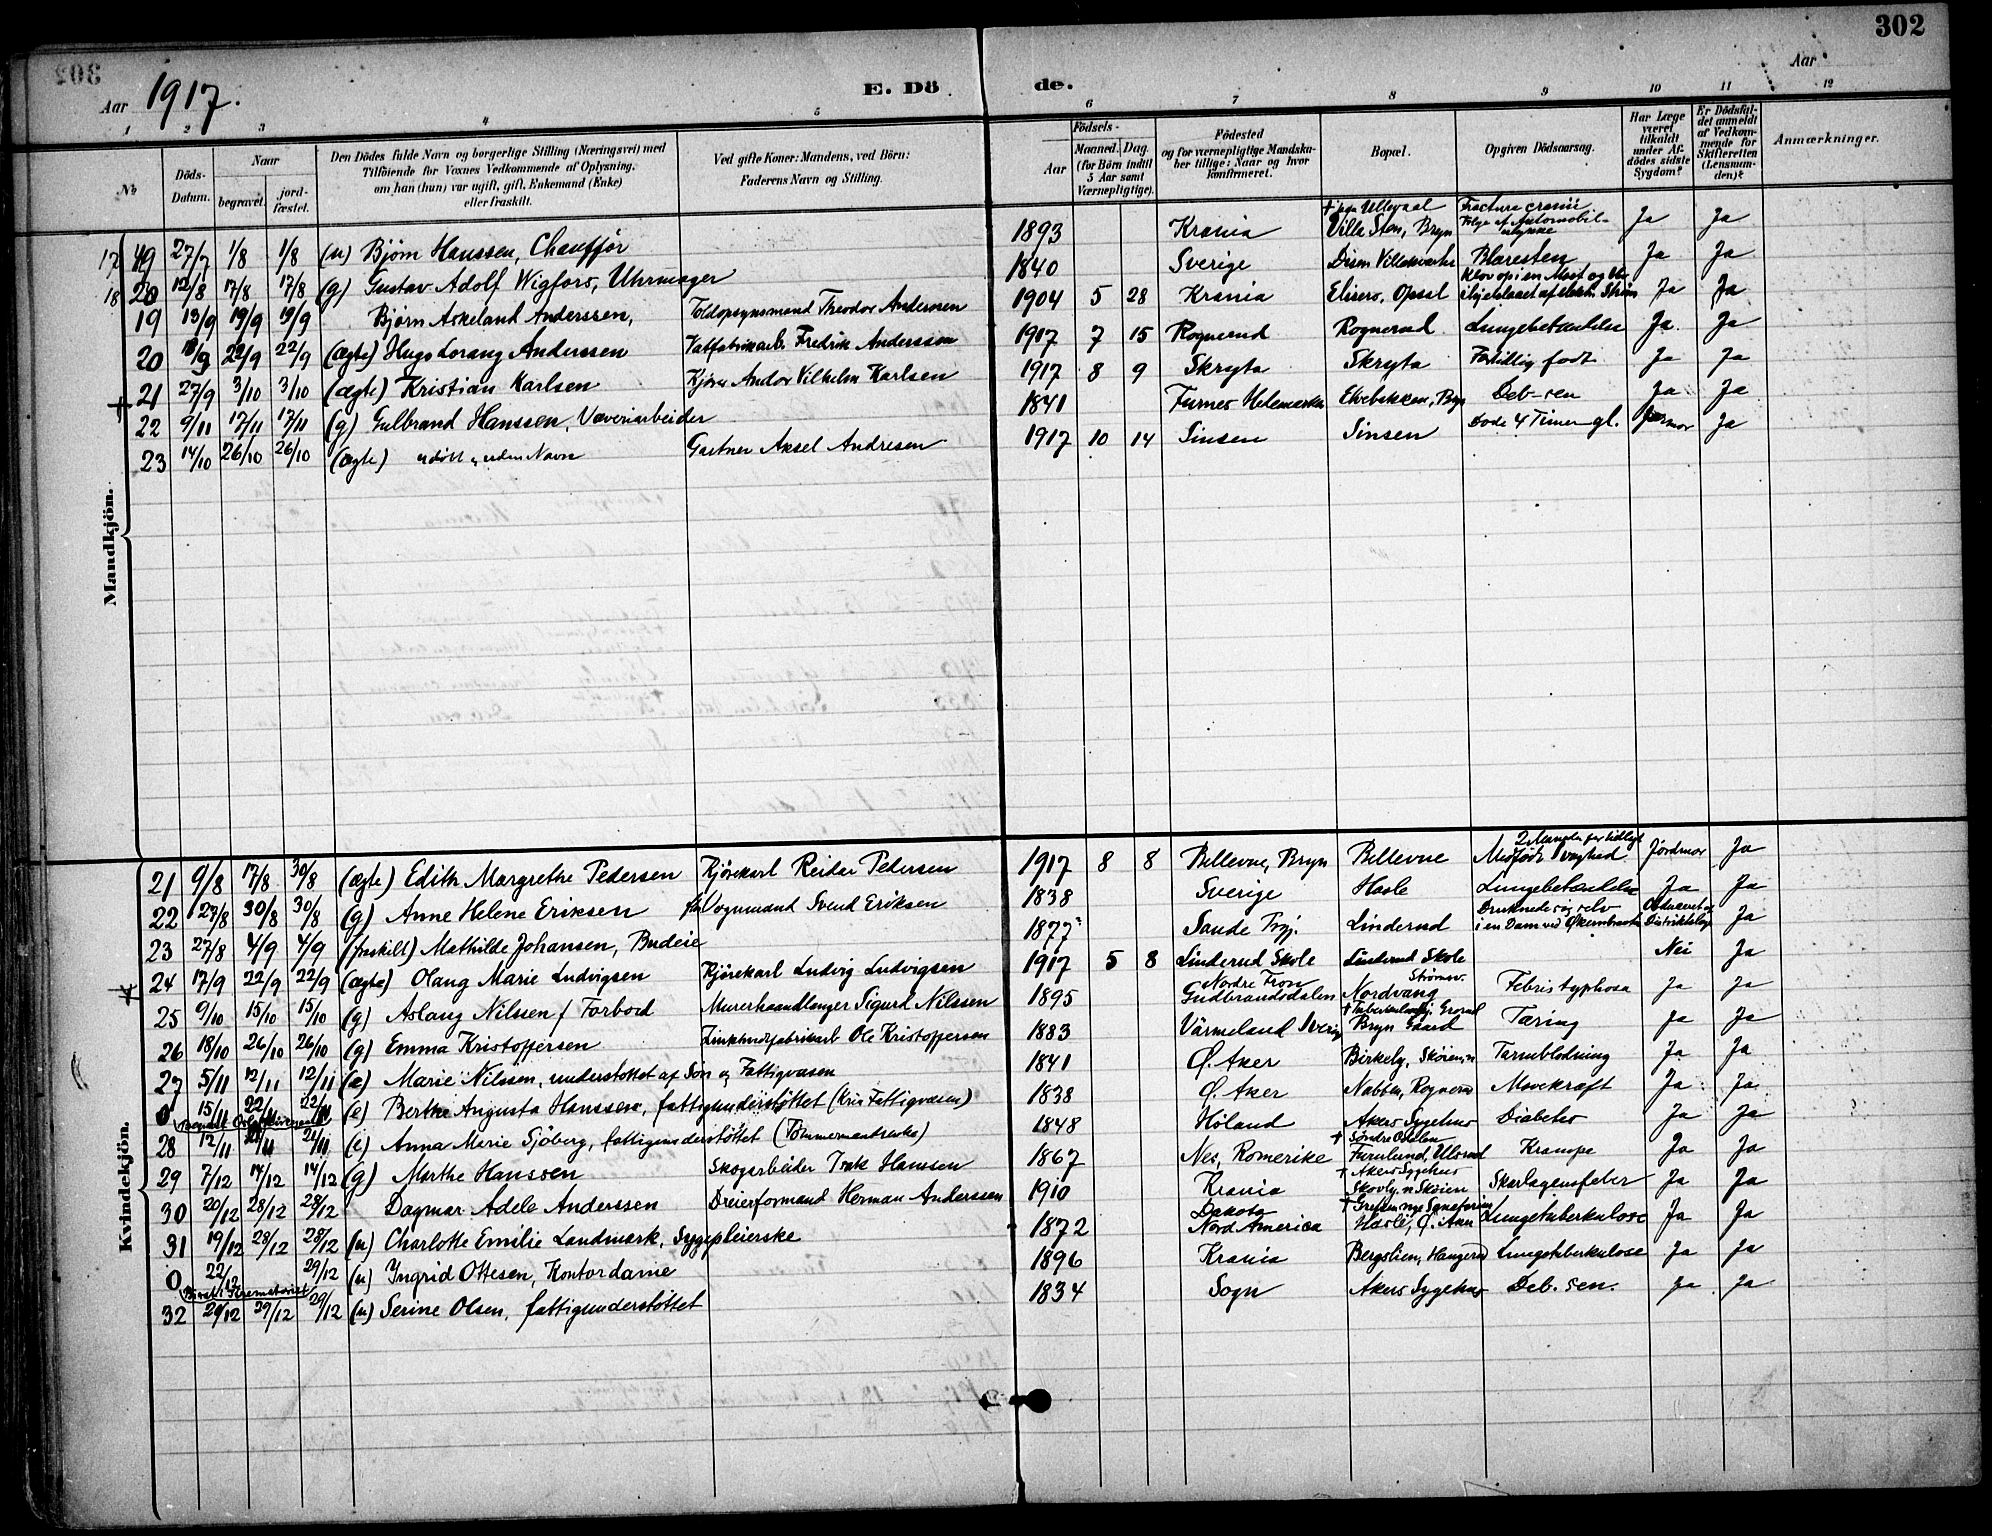 302
Aar 1917.
E. Dö de.
Aar
1 2 3 4 5 6 7 8 9 10 11 12
No
Döds-Datum.
Naar
begravet.
jord-fæstet.
Den Dödes fulde Navn og borgerlige Stilling (Næringsvei) med Tilföiende for Voxnes Vedkommende af Oplysning, om han (hun) var ugift, gift, Enkemand (Enke) eller fraskilt.
Ved gifte Koner: Mandens, ved Börn: Faderens Navn og Stilling.
Födsels-
Aar
Maaned. Dag.
(for Börn indtil 5 Aar samt Værnepligtige).
Födested og for værnepligtige Mandskaber tillige: Naar og hvor konfirmeret.
Bopæl.
Opgiven Dödsaarsag.
Har Læge været tilkaldt under Afdödes sidste Sygdom?
Er Dödsfaldet anmeldt af Vedkommende for Skifteretten (Lensmanden)?
Anmærkninger.
Mandkjön.
17 19 27/7 1/8 1/8 (u) Bjørn Hanssen, Chaufför 1893 Krania † paa Ullevaal Villa Sten, Bryn Fractura cranii Følge af Automobilulykke Ja Ja
18 20 12/8 17/8 17/8 (g) Gustav Adolf Wigfors, Uhrmager 1840 Sverige Blæresten Ja Ja
19 13/9 19/9 19/9 Bjørn Askeland Anderssen, Toldopsynsmand Theodor Anderssen 1904 5 28 Krania Elisero, Opsal Klov op i en Mast og blev ihjelslaaet af elektr. Strøm Ja Ja
20 22/9 22/9 (ægte) Hugo Lorang Anderssen Vatfabrikarb. Fredrik Anderssen 1917 7 15 Rognerud Rognerud Lungebetændelse Ja Ja
21 27/9 3/10 3/10 (ægte) Kristian Karlsen Kjører Andor Vilhelm Karlsen 1917 8 9 Skryta Skryta Fortidlig født Ja Ja
22 9/11 17/11 17/11 (g) Gulbrand Hanssen, Væveriarbeider 1841 Furnes Hedemarken Ekebakken, Bryn Deb-sen Ja Ja
23 14/10 26/10 26/10 (ægte) udøbt, uden Navn Gartner Aksel Andresen 1917 10 14 Sinsen Sinsen Døde 4 Timer gl. Jormor Ja
Kvindekjön.
21 9/8 17/8 30/8 (ægte) Edith Margrethe Pedersen Kjørekarl Reidar Pedersen 1917 8 8 Bellevue, Bryn Bellevue 2 Maaneder for tidligt Medfødt svaghed Jordmor Ja
22 27/8 30/8 30/8 (g) Anne Helene Eriksen Vognmand Svend Eriksen 1838 Sverige Hasle Lungebetændelse Ja Ja
23 27/8 4/9 4/9 (fraskilt) Mathilde Johansen, Budeie 1877 Sande Linderud Druknede sig selv i en Dam ved Økernbraaten Ja
24 17/9 22/9 22/9 (ægte) Olaug Marie Ludvigsen Kjørekarl Ludvig Ludvigsen 1917 5 8 Linderud Skole Linderud Skole Nei Ja
25 9/10 15/10 15/10 (g) Aslaug Nilssen f. Forbord Murerhaandlanger Sigurd Nilssen 1895 Nordre Fron Gudbrandsdalen Nordvang Strømsv. Febris typhosa Ja Ja
26 18/10 26/10 26/10 (g) Emma Kristoffersen Zinkhvidfabrikarb Ole Kristoffersen 1883 Värmeland Sverige † Tuberkulosehj. Grorud Bryn Gaard Tæring Ja Ja
27 5/11 12/11 12/11 (e) Marie Nilssen, understøttet af Søn og Fattigvæsen 1841 Ø. Aker Birkely, Skøien Tarmblødning Ja Ja
0 15/11 22/11 22/11 (e) Berthe Augusta Hanssen, fattigunderstøttet (Kris Fattigvæsen) 1838 Ø. Aker Nabben, Rognerud Mavekræft Ja Ja
28 12/11 24/11 24/11 (e) Anna Marie Sjöberg, fattigunderstøttet (Tømmermandsenke) 1848 Høland Akers Sygehus Diabetes Ja Ja
29 7/12 14/12 14/12 (g) Marthe Hanssen Skogarbeider Isak Hanssen 1867 Nes, Romerike † Søndre Østelen Furulund, Ulsrud Krampe Ja Ja
30 20/12 28/12 28/12 Dagmar Adele Anderssen Dreierformand Herman Anderssen 1910 Krania † Akers Sygehus Skovly n Skøien Skarlagensfeber Ja Ja
31 19/12 28/12 28/12 (u) Charlotte Emilie Landmark, Sygepleierske 1872 Dakota Nord America † Grefsen nye Sanatorium Hasle, Ø. Aker Lungetuberkulose Ja Ja
0 22/12 29/12 (u) Ingrid Ottesen, Kontordame 1896 Krania Bergslien, Haugerud Lungetuberkulose Ja Ja
Krematoriet
32 29/12 29/12 (u) Serine Olsen, fattigunderstøttet 1834 Sogn Akers Sygehus Deb. sen. Ja Ja